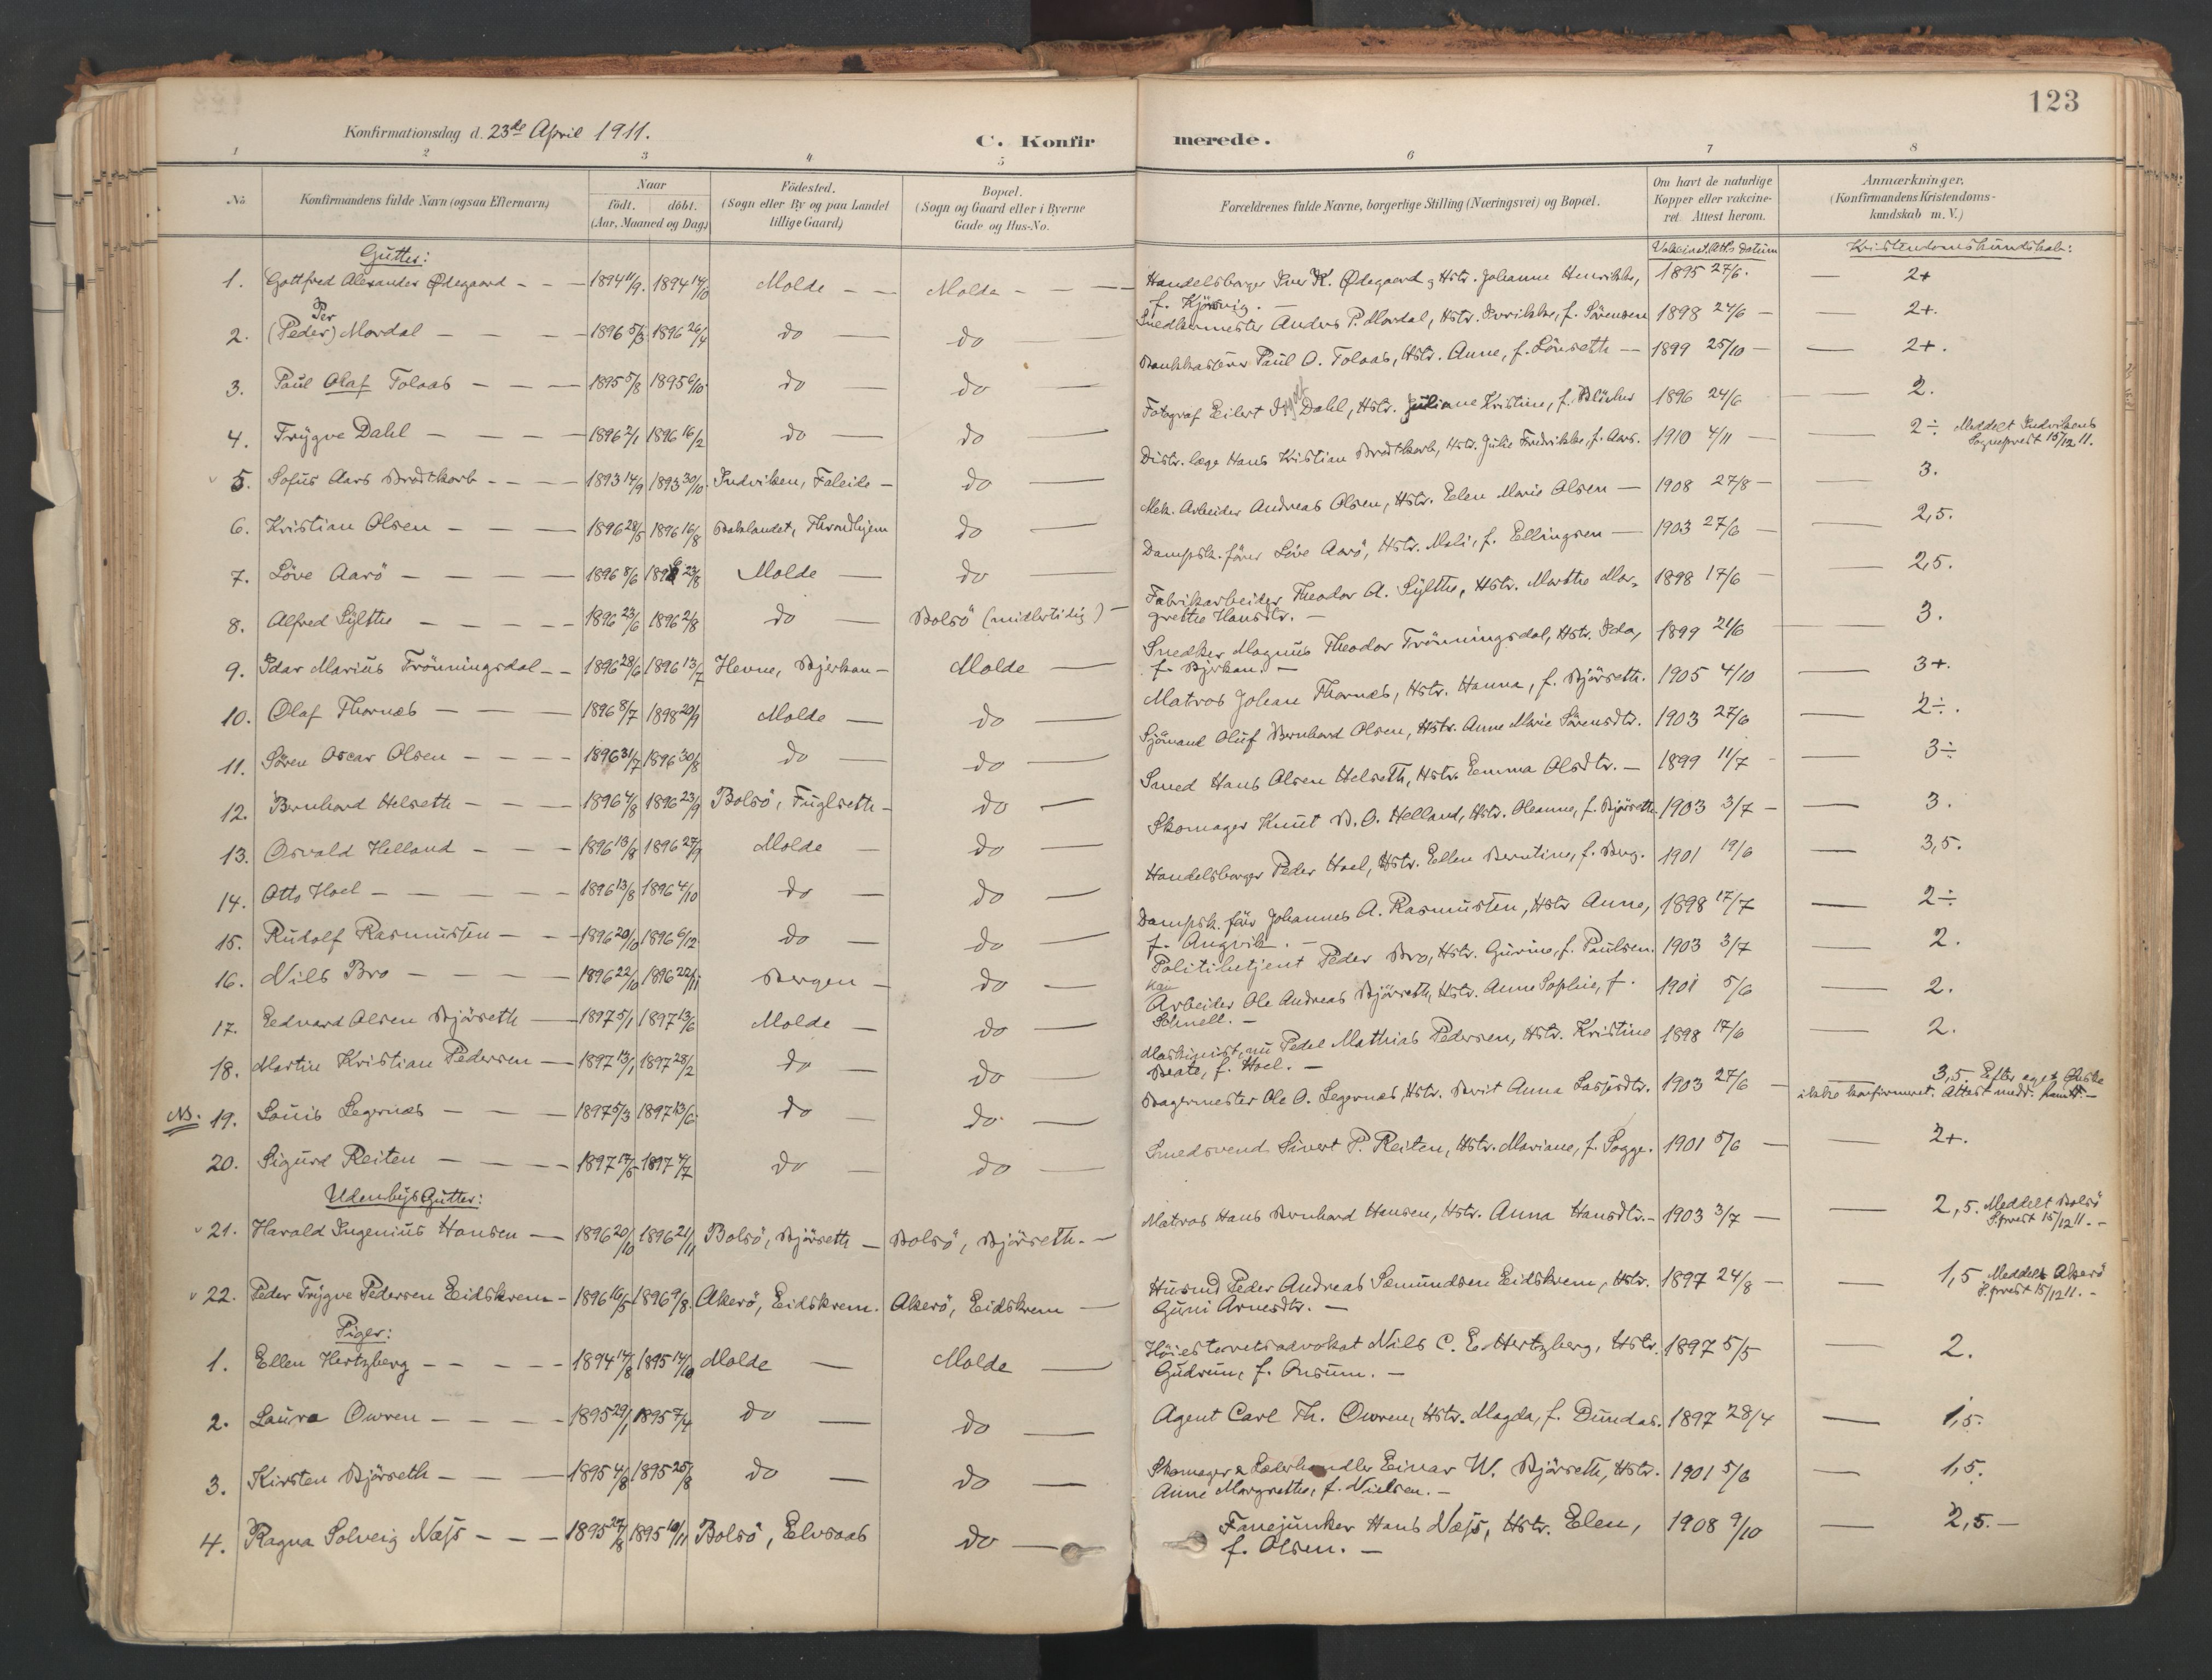 123
Konfirmationsdag d. 23de April 1911.
C. Konfirmerede.
1 2 3 4 5 6 7 8
No
Konfirmandens fulde Navn (ogsaa Efternavn)
Naar
födt. döbt.
(Aar, Maaned og Dag)
Födested.
(Sogn eller By og paa Landet
tillige Gaard)
Bopæl.
(Sogn og Gaard eller i Byerne
Gade og Hus-No.
Forældrenes fulde Navne, borgerlige Stilling (Næringsvei) og Bopæl.
Om havt de naturlige
Kopper eller vakcine-
ret. Attest herom.
Anmærkninger.
(Konfirmandens Kristendoms-
kundskab m. V.)
Vakcinat. Att's Datum
Kristendomskundskab:
Gutter:
1. Gottfred Alexander Ødegaard - - - 1894 11/9. 1894 14/10 Molde - - Molde - - - Handelsborger Iver K. Ødegaard, Hstr. Johanne Henrikke, 1895 27/6. — 2+
f. Kjörsvig. -
Per
2. (Peder) Mordal - - - 1896 5/3 1896 26/4 do — do — Snedkermester Anders P. Mordal, Hstr. Iverikke, f. Sörensen 1898 24/6 - — 2+.
3. Paul Olaf Tolaas - - - 1895 5/8 1895 6/10 do — do — Bankkasserer Paul O. Tolaas, Hstr. Anne, f. Lönseth - 1899 25/10 - — 2+.
4. Trygve Dahl - - - - 1896 2/1 1896 16/2 do — do — Fotograf Eilert Dahl, Hstr. Juliane Kristine, f. Blücher 1896 24/6 — 2.
5. Sofus Aars Brodtkorb - - - 1893 14/9 1893 30/10 Indviken, Faleide - do — Distr. læge Hans Kristian Brodtkorb, Hstr. Julie Fredrikke, f. Aars. 1910 4/11 - — 2÷ Meddelt Indvikens
Sogneprest 15/12 11.
6. Kristian Olsen - - - 1896 28/5 1896 16/8 Baklandet, Throndhjem do — Mek. Arbeider Andreas Olsen, Hstr. Elen Marie Olsen - 1908 27/8 - 3.
7. Löve Aarö - - - - 1896 8/6 1896 23/8 Molde — do — Dampsk. förer Löve Aarö, Hstr. Mali, f. Ellingsen - 1903 27/6 - — 2,5.
8. Alfred Sylthe - - - - 1896 23/6 1896 2/8 do — Bolsö (midlertidig) - Fabrikarbeider Theodor A. Sylthe, Hstr. Marthe Mar- 1898 17/6 - — 2,5.
grethe Hansdtr. -
9. Idar Marius Trönningsdal - - 1896 28/6 1896 13/7 Hevne, Bjerkan - Molde — Snedker Magnus Theodor Trönningsdal, Hstr. Ida, 1899 21/6 — 3.
f. Bjerkan. -
10. Olaf Thornæs - - - 1896 8/7 1898 20/9 Molde — do — Matros Johan Thornæs, Hstr. Hanna, f. Björseth. 1905 4/10 — 3+.
11. Sören Oscar Olsen - - - - 1896 31/7 1896 30/8 do — do — Sjömand Oluf Bernhard Olsen, Hstr. Anne Marie Sörensdtr. 1903 27/6 — 2÷.
12. Bernhard Helseth - - - 1896 4/8 1896 23/9 Bolsö, Fuglseth - do — Smed Hans Olsen Helseth, Hstr. Emma Olsdtr. - 1899 11/7 - — 3÷
13. Osvald Helland - - - 1896 13/8 1896 27/9 Molde — do — Skomager Knut B. O. Helland, Hstr. Oleanne, f. Björseth. 1903 3/7 - — 3.
14. Otto Hoel - - - - 1896 13/8 1896 4/10 do — do — Handelsborger Peder Hoel, Hstr. Ellen Berntine, f. Berg. 1901 19/6 — 3,5.
15. Rudolf Rasmussen - - - 1896 20/10 1896 6/12 do — do — Dampsk. förer Johannes A. Rasmussen, Hstr Anne, 1898 17/7 — 2÷
f. Angvik. -
16. Nils Bro - - - - 1896 22/10 1896 22/11 Bergen - do — Politibetjent Peder Bro, Hstr. Gurine, f. Paulsen. 1903 3/7 — 2.
17. Edvard Olsen Björseth — 1897 5/1 1897 13/6 Molde — do — Arbeider Ole Andreas Björseth, Hstr. Anne Sophie, f. 1901 5/6 — 2.
Schnell. -
18. Martin Kristian Pedersen - 1897 13/1 1897 28/2 do — do — Maskinist, nu Pedel Mathias Pedersen, Hstr. Kristine 1898 17/6 — 2.
Beate, f. Hoel. -
NB. 19. Louis Legernæs - - - 1897 5/3 1897 13/6 do — do — Bagermester Ole O. Legernæs, Hstr. Berit Anna Lassesdtr. 1903 27/6 - — 3,5. Efter eget Önske
ikke konfirmeret. Attest medd. -
20. Sigurd Reiten - - - - 1897 17/5 1897 4/7 do — do — Smedsvend Sivert P. Reiten, Hstr. Mariane, f. Sogge. 1901 5/6 - — 2+.
Udenbys Gutter:
21. Harald Ingenius Hansen — 1896 20/10 1896 21/11 Bolsö, Björseth - Bolsö, Björseth. - Matros Hans Bernhard Hansen, Hstr. Anna Hansdtr. - 1903 3/7 - — 2,5. Meddelt Bolsö
S.prest 15/12 11. -
22. Peder Trygve Pedersen Eidskrem - 1896 16/5 1896 9/8. Akerö, Eidskrem. Akerö, Eidskrem - Husmd Peder Andreas Sæmundsen Eidskrem, Hstr. 1897 24/8 - — 1,5 Meddelt Akerö
S.prest 15/12 11. -
Guni Arnesdtr. -
Piger:
1. Ellen Hertzberg - - - - - 1894 17/8 1895 14/10 Molde — Molde — Höiesteretsadvokat Nils C. E. Hertzberg, Hstr. 1897 5/5 — 2.
Gudrun, f. Onsum. -
2. Laura Owren - - - - 1895 29/1 1895 7/4 do — do — Agent Carl Th. Owren, Hstr. Magda, f. Dundas. 1897 28/4 — 1,5.
3. Kirsten Björseth - - - 1895 4/8 1895 25/8 do — do — Skomager & Læderhandler Einar W. Björseth, Hstr. 1901 5/6 — 1,5.
Anne Margrethe, f. Nielsen. -
4. Ragna Solveig Næss - - - 1895 27/8 1895 10/11 Bolsö, Elvsaas do — Fanejunker Hans Næss, Hstr. Elen, 1908 9/10 — 2,5. -
f. Olsen. -